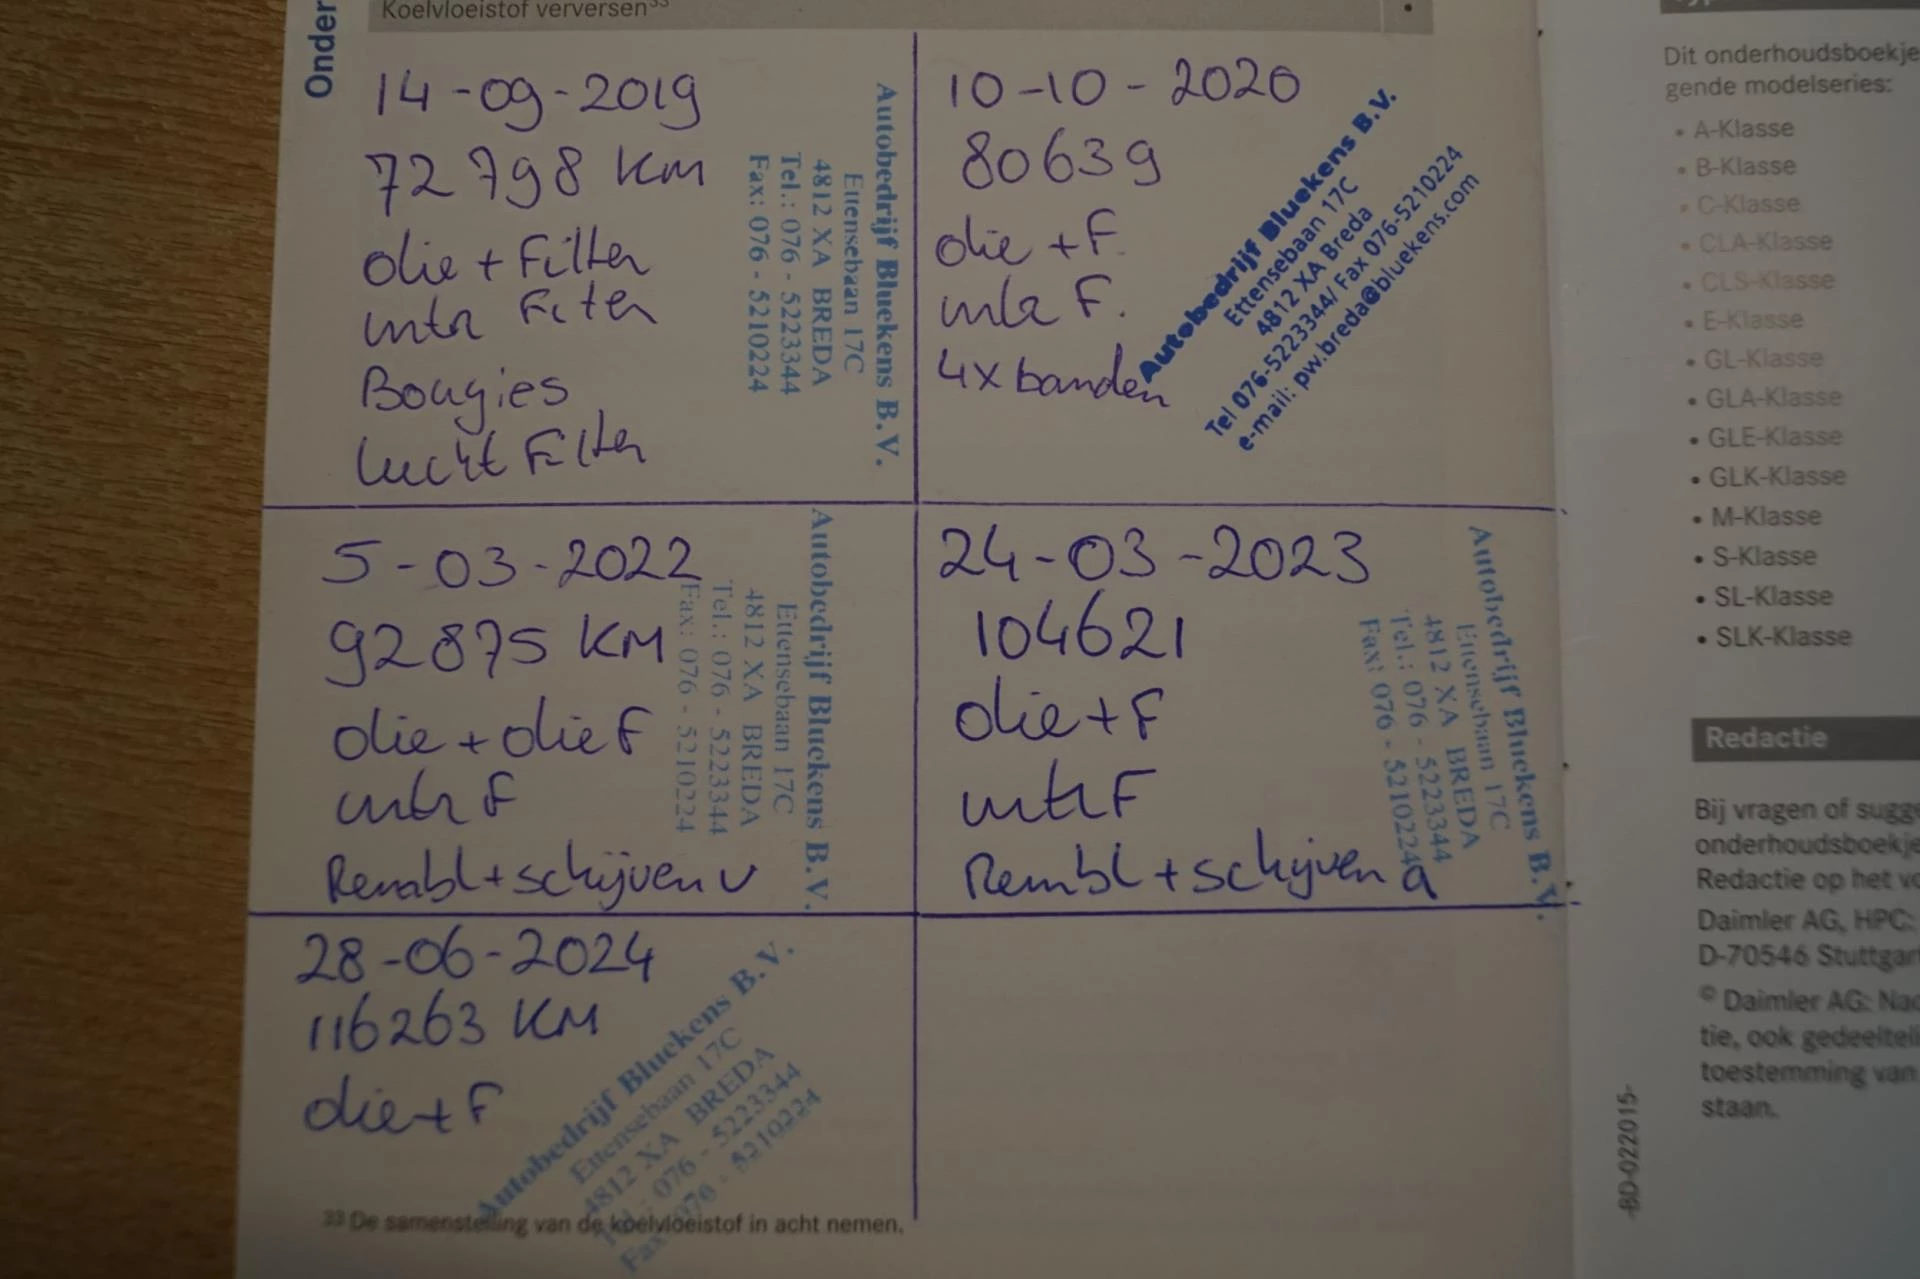 Onder
Koelvloeistof verversen³³
14-09-2019
72798 KM
olie + Filter
intr Filter
Bougies
lucht Filter
Autobedrijf Bluekens B.V.
Ettensebaan 17C
4812 XA BREDA
Tel.: 076 - 5223344
Fax: 076 - 5210224
10-10-2020
80639
olie + F.
intr F.
4x banden
Autobedrijf Bluekens B.V.
Ettensebaan 17C
4812 XA Breda
Tel 076-5223344/ Fax 076-5210224
e-mail: pw.breda@bluekens.com
5-03-2022
92875 KM
olie + olie F
intr F
Rembl + schijven v
Autobedrijf Bluekens B.V.
Ettensebaan 17C
4812 XA BREDA
Tel.: 076 - 5223344
Fax: 076 - 5210224
24-03-2023
104621
olie + F
intr F
Rembl + schijven a
Autobedrijf Bluekens B.V.
Ettensebaan 17C
4812 XA BREDA
Tel.: 076 - 5223344
Fax: 076 - 5210224
28-06-2024
116263 KM
olie + F
Autobedrijf Bluekens B.V.
Ettensebaan 17C
4812 XA BREDA
Tel.: 076 - 5223344
Fax: 076 - 5210224
³³ De samenstelling van de koelvloeistof in acht nemen.
Dit onderhoudsboekje
gende modelseries:
• A-Klasse
• B-Klasse
• C-Klasse
• CLA-Klasse
• CLS-Klasse
• E-Klasse
• GL-Klasse
• GLA-Klasse
• GLE-Klasse
• GLK-Klasse
• M-Klasse
• S-Klasse
• SL-Klasse
• SLK-Klasse
Redactie
Bij vragen of sugge
onderhoudsboekje
Redactie op het vo
Daimler AG, HPC:
D-70546 Stuttgart
© Daimler AG: Nad
tie, ook gedeelteli
toestemming van
staan.
-BD-022015-